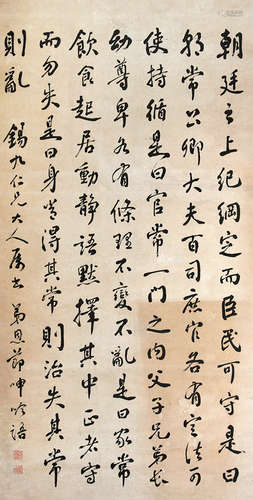 朝廷之上紀綱定而臣民可守是曰
朝常公卿大夫百司庶官各有定法可
使持循是曰官常一門之内父子兄弟長
幼尊卑各有條理不變不亂是曰家常
飲食起居動靜語默擇其中正者守
而勿失是曰身常得其常則治失其常
則亂 錫九仁兄大人屬書 弟恩節呻吟語